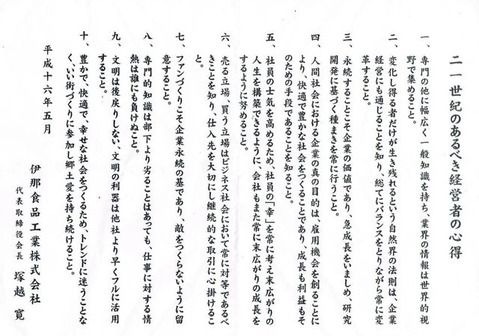 二一世紀のあるべき経営者の心得
一、専門の他に幅広く一般知識を持ち、業界の情報は世界的視
野で集めること。
二、変化し得る者だけが生き残れるという自然界の法則は、企業
経営にも通じることを知り、総てにバランスをとりながら常に変
革すること。
三、永続することこそ企業の価値であり、急成長をいましめ、研究
開発に基づく種まきを常に行うこと。
四、人間社会における企業の真の目的は、雇用機会を創ることに
より、快適で豊かな社会をつくることであり、成長も利益もそ
のための手段であることを知ること。
五、社員の士気を高めるため、社員の「幸」を常に考え末広がりの
人生を構築できるように、会社もまた常に末広がりの成長を
するように努めること。
六、売る立場、買う立場はビジネス社会において常に対等であるべ
きことを知り、仕入先を大切にし継続的な取引に心掛けるこ
と。
七、ファンづくりこそ企業永続の基であり、敵をつくらないように留
意すること。
八、専門的知識は部下より劣ることはあっても、仕事に対する情
熱は誰にも負けぬこと。
九、文明は後戻りしない。文明の利器は他社より早くフルに活用
すること。
十、豊かで、快適で、幸せな社会をつくるため、トレンドに迷うことな
く、いい街づくりに参加し郷土愛を持ち続けること。
平成十六年五月
伊那食品工業株式会社
代表取締役会長 塚越 寛